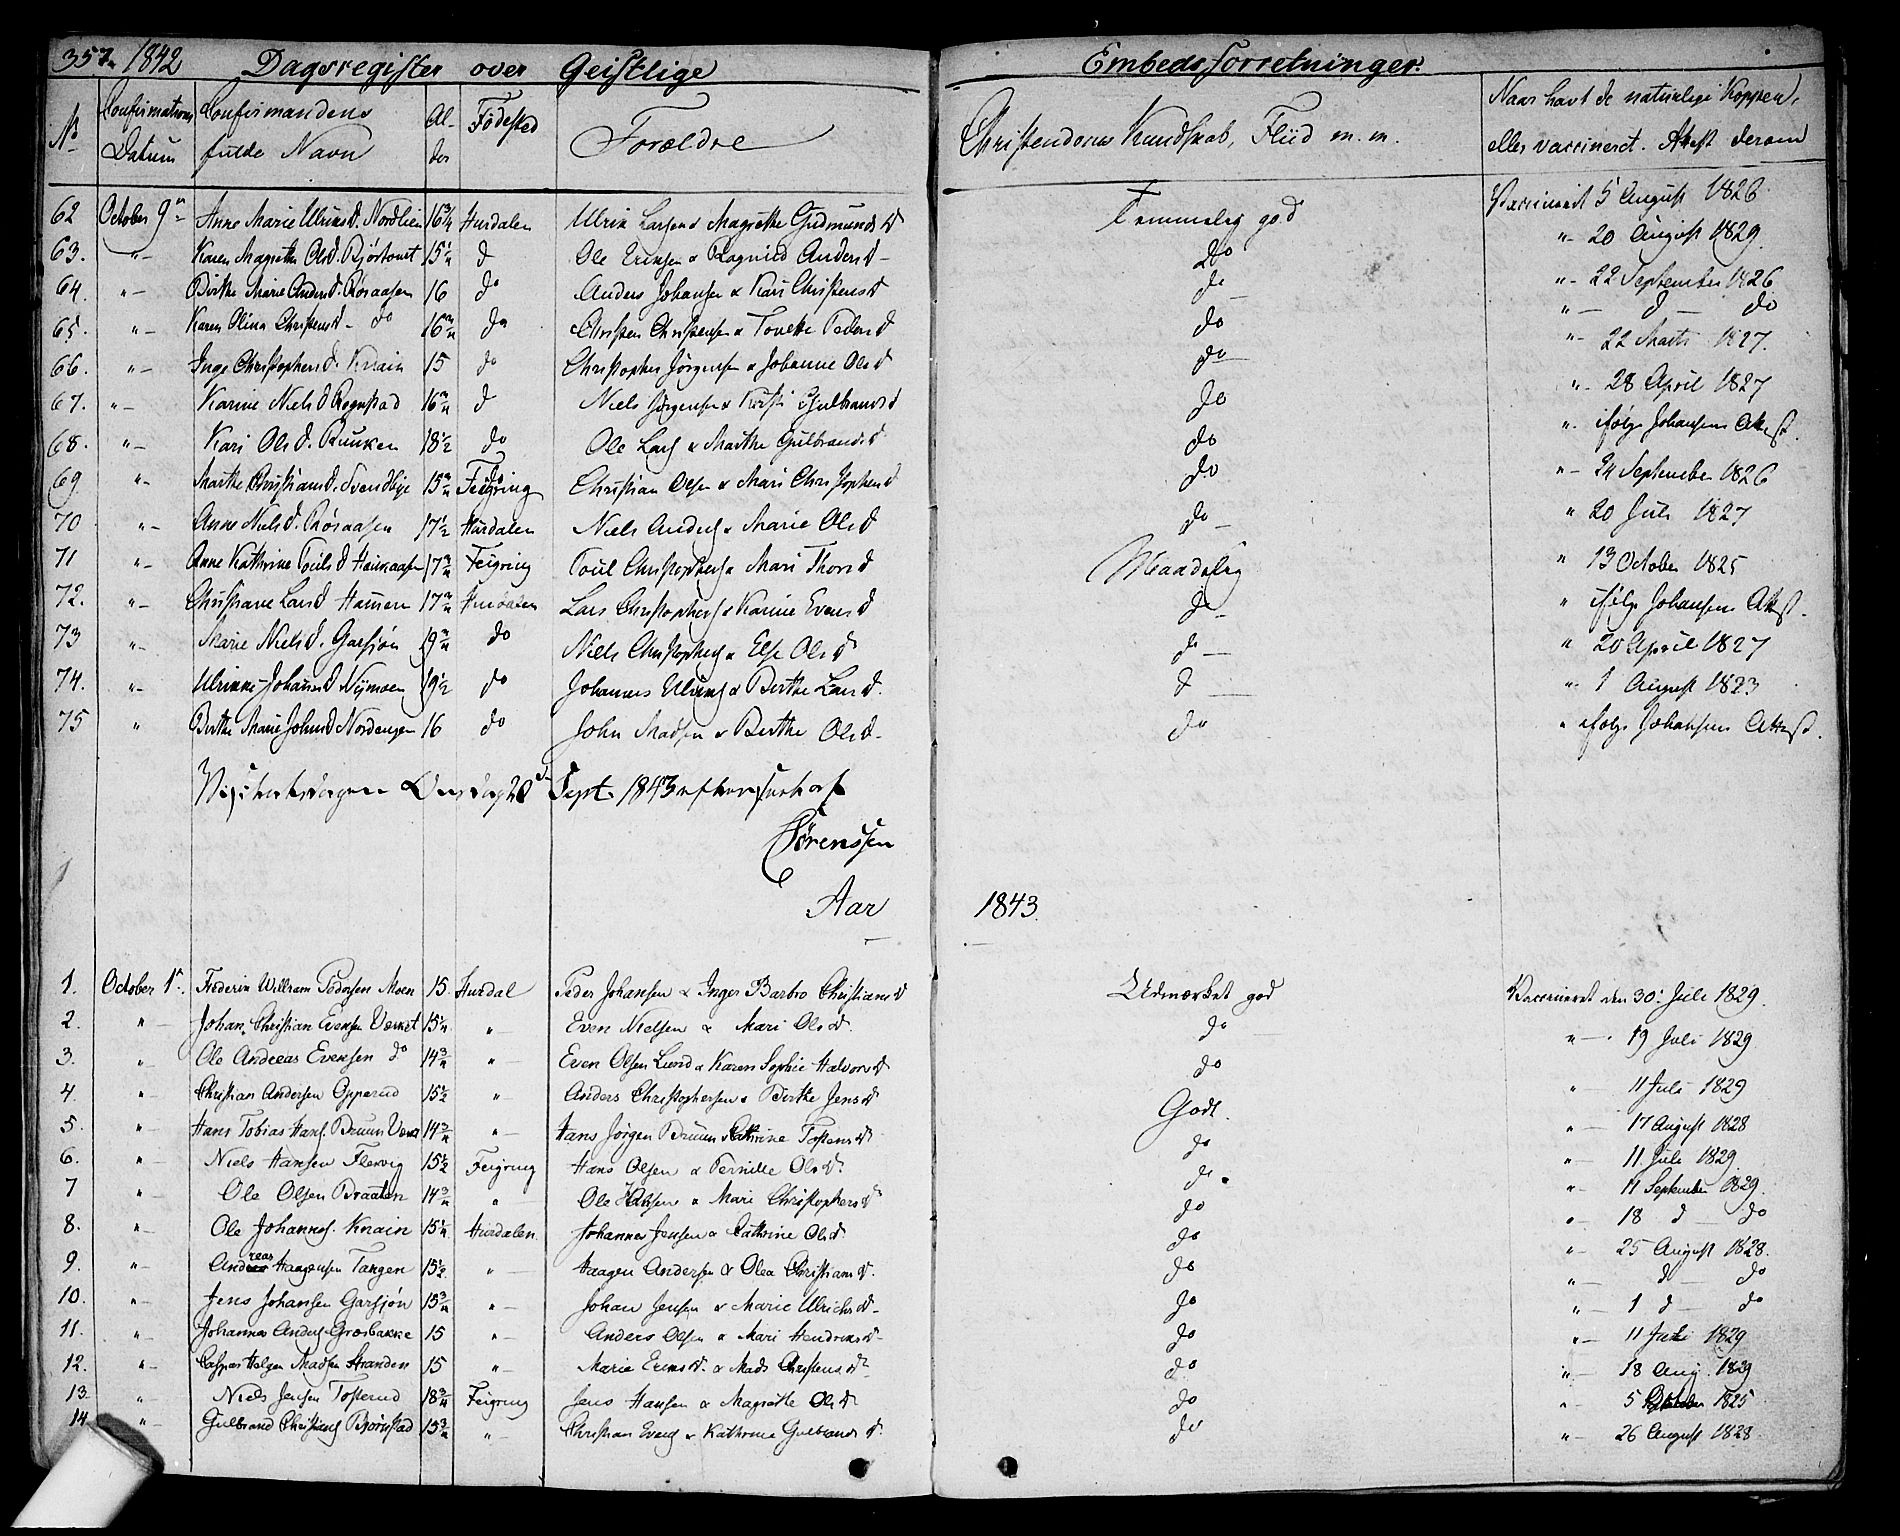 357. 1842 Dagsregister over Geistlige Embedsforretninger.
№ Confirmations Datum Confirmandens fulde Navn Alder Fødested Forældre Christendoms Kundskab, Fliid m. m. Naar havt de naturlige Kopper, eller vaccineret. Attest derom
62 October 9de Anne Marie Ulriksd. Nordlien 16 3/4 Hurdalen Ulrik Larsen & Magrethe Gudmundsd Temmelig god Vaccineret 5 August 1826
63. "- Karen Magrethe Olsd. Bjørtomt 15 1/4 d Ole Eriksen & Ragnild Andersd- do "- 20 August 1829.
64. "- Birthe Marie Andersd. Røsaasen 16 do Anders Johansen & Kari Christensd do "- 22 September 1826
65. "- Karen Olina Christensd- do 16 3/4 do Christen Christensen & Tonette Pedersd do "- d - do
66. "- Inge Christophersd. Knain 15 do Christopher Jørgensen & Johanne Olsd do "- 22 Marts 1827.
67. "- Karine Nielsd Rognstad 16 3/4 d Niels Jørgensen & Kirsti Gulbrandsd do "- 28 April 1827
68. "- Kari Olsd. Ruuken 18 1/2 do Ole Lars & Marthe Gulbrandsd do " ifølge Johansens Attest.
69 "- Marthe Christiansd. Svendbye 15 3/4 Feigring Christian Olsen & Mari Christophersd do "- 24 September 1826
70 "- Anne Nielsd. Røsaasen 17 1/2 Hurdalen Niels Anders & Marie Olsd do- " 20 Juli 1827
71 "- Anne Kathrine Poulsd Haukaasen 17 3/4 Feigring Poul Christophers & Mari Thorsd Maadelig " 13 October 1825
72. "- Christiane Larsd Hansen 17 3/4 Hurdalen Lars Christophers & Karine Evensd do- " ifølge Johansens Attest.
73 "- Marie Nielsd. Garsjøn 19 3/4 do Niels Christophers & Else Olsd do- " 20 April 1827
74. "- Ulrikke Johansd Nymoen 19 1/2 do Johannes Ulriks & Berthe Larsd. d - " 1 August 1823
75 " Berthe Marie Johnsd Nordengen 16 do John Madsen & Berthe Olsd- do " ifølge Johansens Attest.
Sept. 1843
Sørenssen
Aar 1843.
1. October 1ste Frederik Willram Pedersen Moen 15. Hurdal Peder Johansen & Inger Barbro Christiansd Udmærket god Vaccineret den 30. Juli 1829.
2. " Johan Christian Evensen Værket 15 1/4 " Even Nielsen & Mari Olsd. do "- 19 Juli 1829.
3. " Ole Andreas Evensen do 14 3/4 "- Even Olsen Lund & Karen Sophie Halvorsd do
4. "- Christian Andersen Opperud 15 1/2 "- Anders Christophersen & Birthe Jensd Godt. "- 11 Juli 1829
5. "- Hans Tobias Hans. Bruun Værket 14 3/4 "- Hans Jørgen Bruun & Cathrine Tostensd. do "- 17 August 1828
6. "- Niels Hansen Flesvig 15 1/2 Feigring Hans Olsen & Pernille Olsd. do. "- 11 Juli 1829.
7 "- Ole Olsen Braaten 14 3/4 " Ole Olsen & Mari Christophersd do "- 11 September 1829.
8. "- Ole Johannes. Knain 15 1/4 Hurdalen Johannes Jensen & Cathrine Olsd do "- 18 d - do
9. "- Andreas Haagensen Tangen 15 1/2 "- Haagen Andersen & Olea Christiansd. do "- 25 August 1828.
10. "- Jens Johansen Garsjøn 15 3/4 "- Johan Jensen & Marie Ulriksd- do "- d - do
11. "- Johannes Anders. Græsbakke 15 "- Anders Olsen & Mari Hendriksd- do "- 1 d - do
12. "- Caspar Helgen Madsen Stranden 15 " Marie Eriksd. & Mads Christensd do "- 11 Juli 1829
13. " Niels Jensen Tosterud 18 3/4 Feigring Jens Hansen & Magrethe Olsd do "- 18 Aug. 1829
14 "- Gulbrand Christians. Bjørnstad 15 3/4 "- Christian Evens & Kathrine Gulbrandsd. do "- 5 October 1825
"- 26 August 1828.